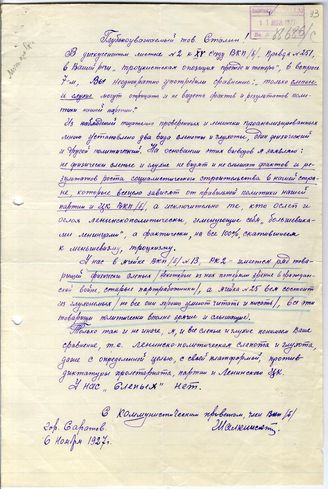 Глубокоуважаемый тов. Сталин!
В дискуссионном листке №2 к XV съезду ВКП/б/, Правда №251,
в Вашей речи, "троцкистская оппозиция прежде и теперь", в вопросе
7-м, Вы неоднократно употребили сравнение: только слепые
и глухие могут отрицать и не видеть фактов и результатов поли-
тики нашей партии.
Из наблюдений тщательно проверенных и
лично установлено два вида слепоты и глухоты, один физический
и другой политический. На основании этих выводов я заявляю:
не физически слепые и глухие не видят и не слышат фактов и ре-
зультатов роста социалистического строительства в нашей стра-
не, которые всецело зависят от правильной политики нашей
партии и ЦК ВКП/б/, а исключительно те, кто ослеп и
оглох ленинскополитически, именующие себя "большевиками
ленинцами", а фактически, на все 100%, скатившиеся
к меньшевизму, троцкизму.
У нас в ячейке ВКП/б/ №13, РК2 - имеется ряд това-
рищей физически слепых
войне, старые партработники/, а ячейка №25 вся состоит
из глухонемых /не все они даже умеют читать и писать/, но эти
товарищи политически вполне зрячие и слышащие.
Только так и не иначе, я, и все слепые и глухие поняли Ваше
сравнение, т.е. ленинско-политическая слепота и глухота,
даже с определенной целью, с своей платформой, против
диктатуры пролетариата, партии и Ленинского ЦК.
У нас "Слепых" нет.
С коммунистическим приветом, член ВКП/б/
гор. Саратов
6 ноября 1927 г.